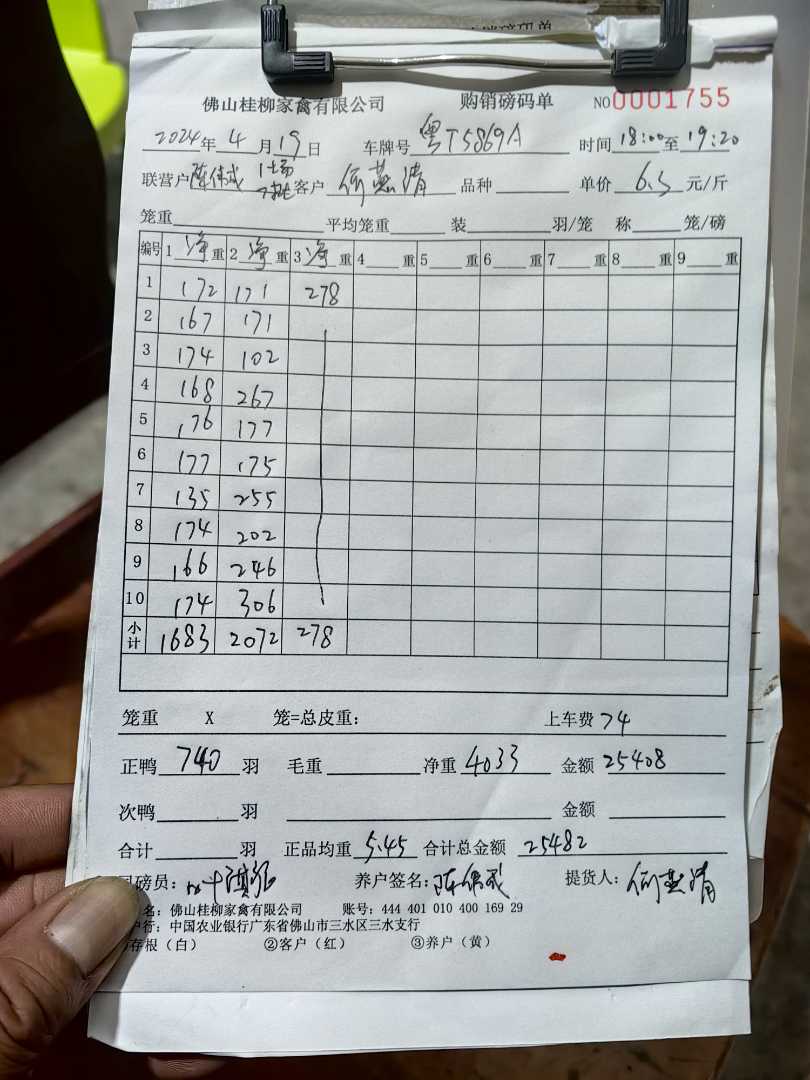 佛山桂柳家禽有限公司 购销磅码单 NO0001755
2024年4月19日 车牌号 粤T5869A 时间 18:00至19:20
联营户 陈伟成 客户 何燕清 品种 单价 6.3 元/斤
笼重 平均笼重 装 羽/笼 称 笼/磅
编号 1净重 2净重 3净重 4重 5重 6重 7重 8重 9重
1 172 171 278
2 167 171
3 174 102
4 168 267
5 176 177
6 177 175
7 135 255
8 174 202
9 166 246
10 174 306
小计 1683 2072 278
笼重 X 笼=总皮重: 上车费 74
正鸭 740 羽 毛重 净重 4033 金额 25408
次鸭 羽 金额
合计 羽 正品均重 5.45 合计总金额 25482
磅员: 养户签名: 陈伟成 提货人: 何燕清
名: 佛山桂柳家禽有限公司 账号: 444 401 010 400 169 29
户行: 中国农业银行广东省佛山市三水区三水支行
存根(白) ②客户(红) ③养户(黄)